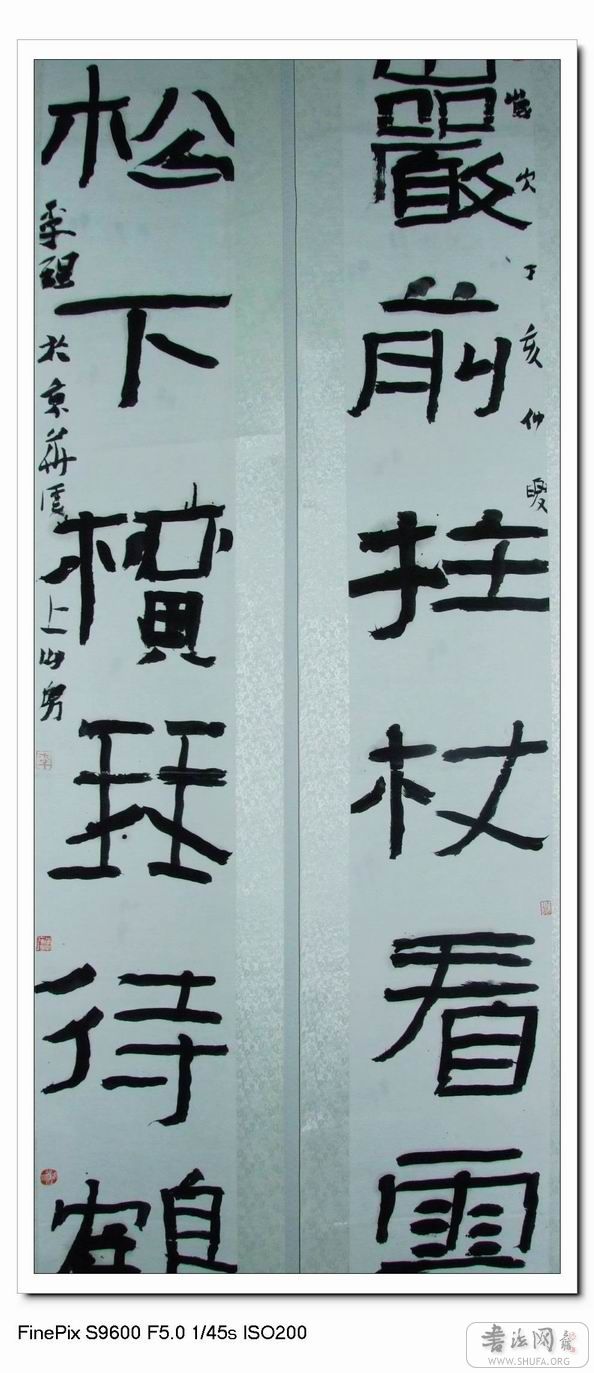 巖前拄杖看雲
歲次丁亥仲
松下橫琴待鶴
於京華
上山房
FinePix S9600 F5.0 1/45s ISO200
书法网
WWW.SHUFA.ORG